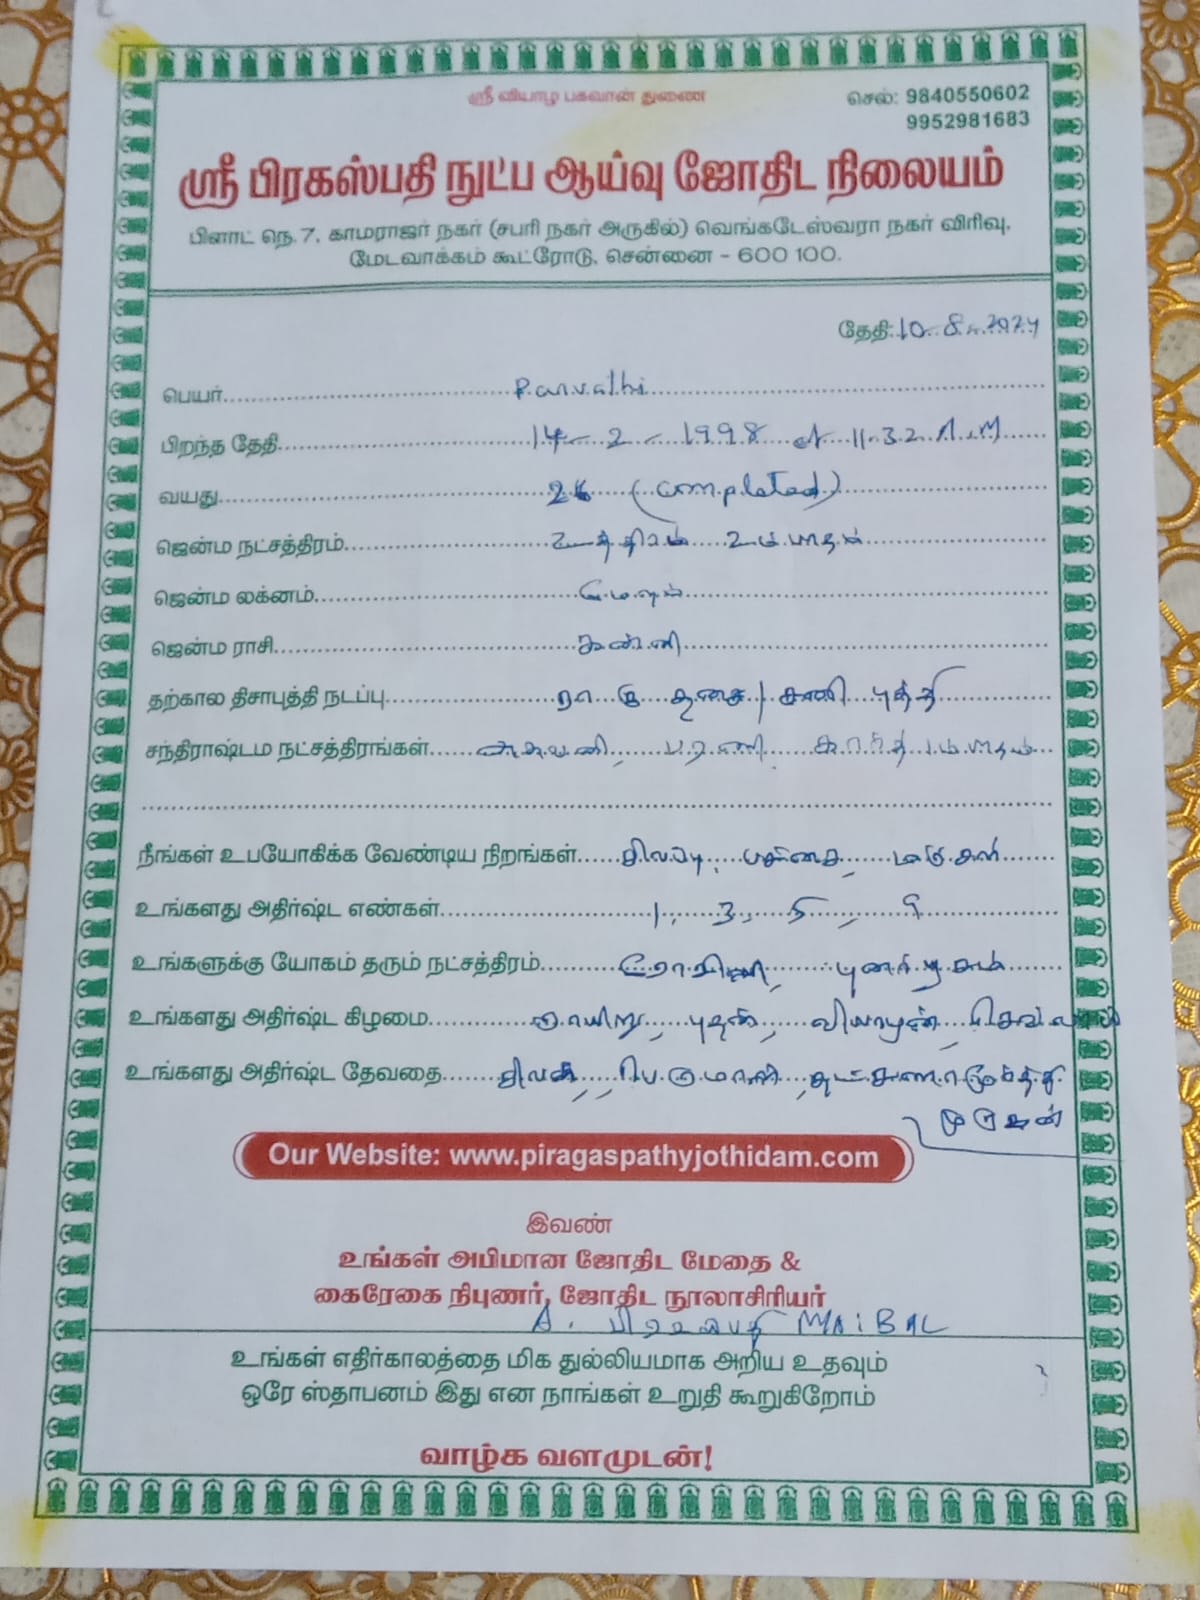 ஸ்ரீ வியாழ பகவான் துணை
செல்: 9840550602
9952981683
ஸ்ரீ பிரகஸ்பதி நுட்ப ஆய்வு ஜோதிட நிலையம்
பிளாட் நெ.7, காமராஜர் நகர் (சபரி நகர் அருகில்) வெங்கடேஸ்வரா நகர் விரிவு,
மேடவாக்கம் கூட்ரோடு, சென்னை - 600 100.
தேதி: 10-8-2024
பெயர் Parvathi
பிறந்த தேதி 14-2-1998 at 11.32 A.M
வயது 26 (completed)
ஜென்ம நட்சத்திரம் உத்திரம் 2ம் பாதம்
ஜென்ம லக்னம் மேஷம்
ஜென்ம ராசி கன்னி
தற்கால திசாபுத்தி நடப்பு ராகு தசை / சனி புத்தி
சந்திராஷ்டம நட்சத்திரங்கள் அசுவனி, பரணி, கார்த் 1ம் பாதம்
நீங்கள் உபயோகிக்க வேண்டிய நிறங்கள் சிவப்பு, பச்சை, மஞ்சள்
உங்களது அதிர்ஷ்ட எண்கள் 1, 3, 5, 9
உங்களுக்கு யோகம் தரும் நட்சத்திரம் ரோகிணி, புனர்பூசம்
உங்களது அதிர்ஷ்ட கிழமை ஞாயிறு, புதன், வியாழன், செவ்வாய்
உங்களது அதிர்ஷ்ட தேவதை சிவன், பெருமாள், தட்சணாமூர்த்தி
முருகன்
Our Website: www.piragaspathyjothidam.com
இவண்
உங்கள் அபிமான ஜோதிட மேதை &
கைரேகை நிபுணர், ஜோதிட நூலாசிரியர்
A.
உங்கள் எதிர்காலத்தை மிக துல்லியமாக அறிய உதவும்
ஒரே ஸ்தாபனம் இது என நாங்கள் உறுதி கூறுகிறோம்
வாழ்க வளமுடன்!